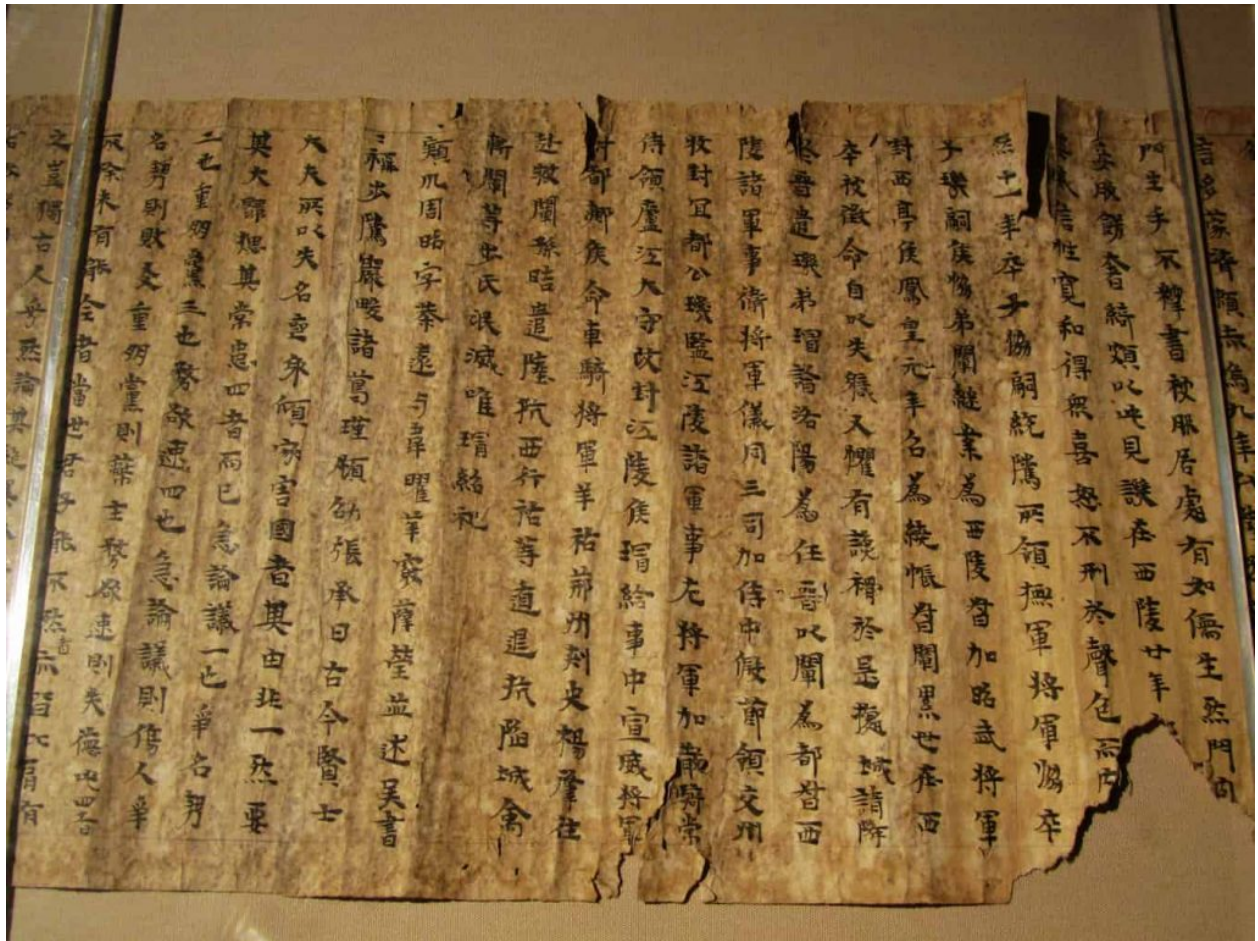 言多蒙濟賴赤烏九年
門生手不釋書被服居處有如儒生然門內
妾服飾奢綺頗以此見譏在西陵廿年
威信性寬和得眾喜怒不刑於聲色而內
然十一年卒子協嗣統騭所領撫軍將軍協卒
子璣嗣侯協弟闡繼業為西陵督加昭武將軍
封西亭侯鳳皇元年召為繞帳督闡累世在西
卒被徵命自以失職又懼有讒禍於是據城請降
於晉遣璣弟璿詣洛陽為任晉以闡為都督西
陵諸軍事衛將軍儀同三司加侍中假節領交州
牧封宜都公璣監江陵諸軍事左將軍加散騎常
侍領廬江大守改封江陵侯璿給事中宣威將軍
封都鄉侯命車騎將軍羊祜荊州刺史楊肇往
赴救闡孫晧遣陸抗西行祜等遁退抗陷城禽
斬闡等步氏泯滅唯璿紹祀
潁川周昭字恭遠与韋曜華覈薛瑩並述吳書
稱步騭嚴畯諸葛瑾顧劭張承曰古今賢士
大夫所以失名喪身傾家害國者其由非一然要
其大歸揔其常患四者而已急論議一也爭名勢
二也重朋黨三也務欲速四也急論議則傷人爭
名勢則敗友重朋黨則蔽主務欲速則失德此四者
不除未有能全者當世君子能不然者亦皆比肩有
之豈獨古人乎然論其